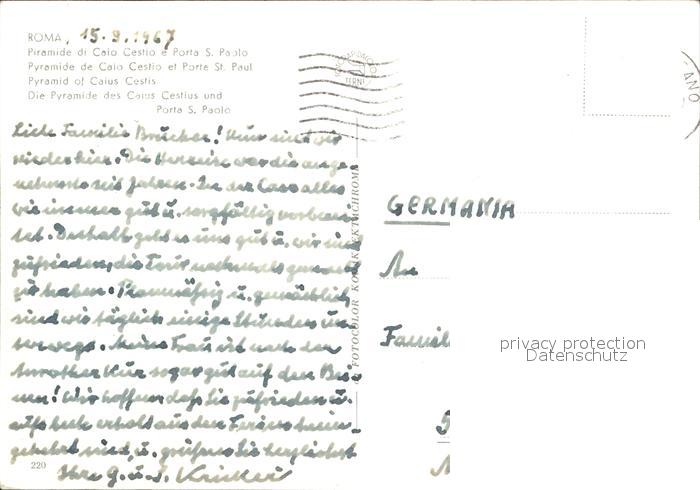 ROMA, 15.9.1967
Piramide di Caio Cestio e Porta S. Paolo
Pyramide de Caio Cestio et Porte St. Paul
Pyramid of Caius Cestis
Die Pyramide des Caius Cestius und
Porta S. Paolo
TERNI
ANO
Liebe Familie Brücker! Nun sind wir
wieder hier. Die Herreise war die ange-
nehmste seit Jahren. In der Casa alles
wie immer gut u. sorgfältig vorberei-
tet. Deshalb geht es uns gut u. wir sind
zufrieden, die Tour nochmals gemacht
zu haben. Planmäßig u. gemächlich
sind wir täglich einige Stunden un-
terwegs. Meine Frau ist nach der
Kur sogar gut auf den Bei-
nen! Wir hoffen daß Sie zufrieden u.
aufs beste erholt aus den Ferien heim-
gekehrt sind, u. grüßen Sie herzlichst
Ihre G. u. J. Kricker
220
FOTOCOLOR KODAK EKTACHROME
GERMANIA
An
Famil
privacy protection
Datenschutz
5